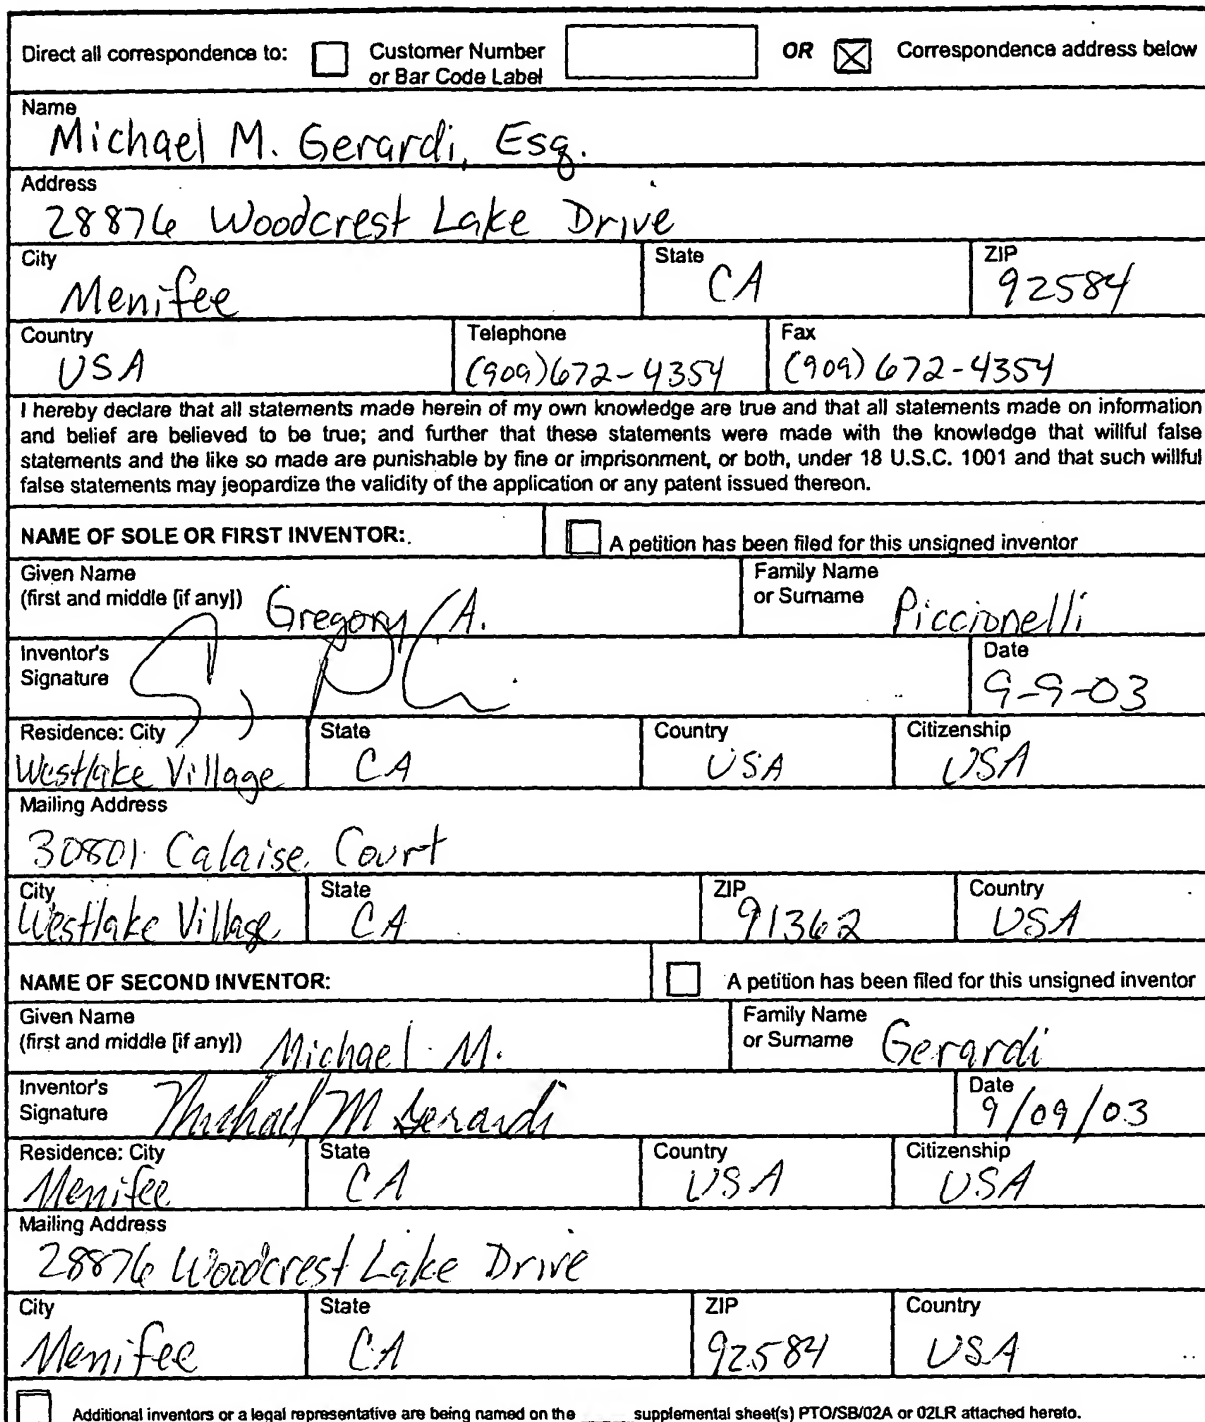 Direct all correspondence to: Customer Number or Bar Code Label OR Correspondence address below
Name
Michael M. Gerardi, Esq.
Address
28876 Woodcrest Lake Drive
City State ZIP
Menifee CA 92584
Country Telephone Fax
USA (909)672-4354 (909)672-4354
I hereby declare that all statements made herein of my own knowledge are true and that all statements made on information
and belief are believed to be true; and further that these statements were made with the knowledge that willful false
statements and the like so made are punishable by fine or imprisonment, or both, under 18 U.S.C. 1001 and that such willful
false statements may jeopardize the validity of the application or any patent issued thereon.
NAME OF SOLE OR FIRST INVENTOR: A petition has been filed for this unsigned inventor
Given Name
(first and middle [if any]) Gregory A.
Family Name
or Surname Piccionelli
Inventor's
Signature
Date
9-9-03
Residence: City State Country Citizenship
Westlake Village CA USA USA
Mailing Address
30801 Calaise Court
City State ZIP Country
Westlake Village CA 91362 USA
NAME OF SECOND INVENTOR: A petition has been filed for this unsigned inventor
Given Name
(first and middle [if any]) Michael M.
Family Name
or Surname Gerardi
Inventor's
Signature Michael M Gerardi
Date
9/09/03
Residence: City State Country Citizenship
Menifee CA USA USA
Mailing Address
28876 Woodcrest Lake Drive
City State ZIP Country
Menifee CA 92584 USA
Additional inventors or a legal representative are being named on the _____ supplemental sheet(s) PTO/SB/02A or 02LR attached hereto.